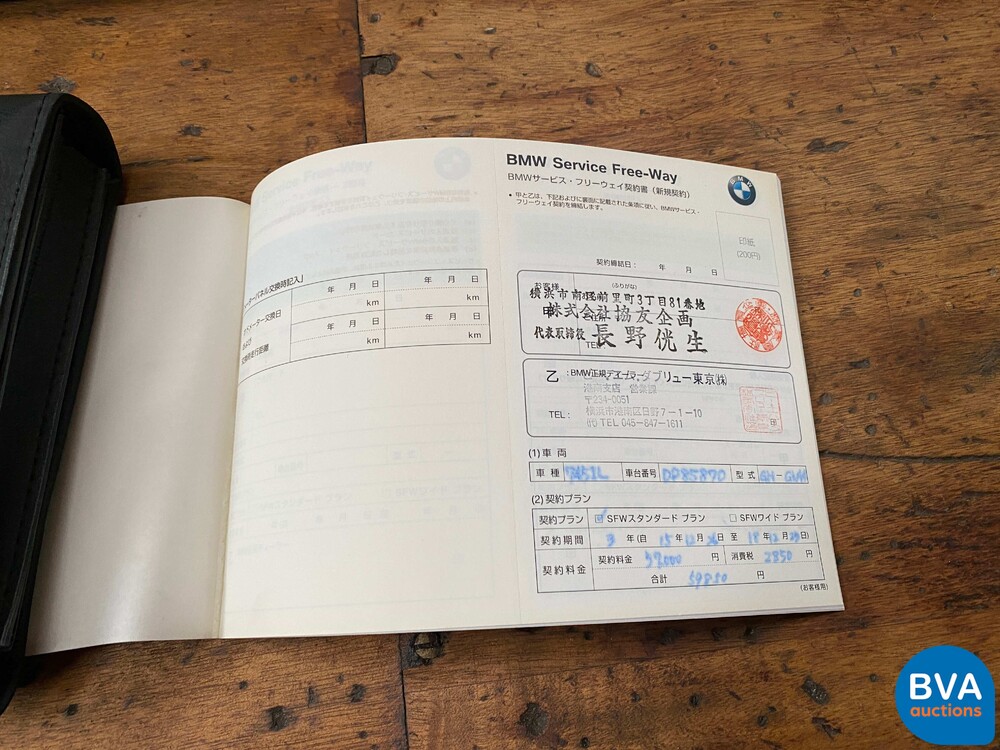 年 月 日
年 月 日
km
km
年 月 日
年 月 日
km
km
BMW Service Free-Way
BMWサービス・フリーウェイ契約書（新規契約）
• 甲と乙は、下記および裏面に記載された条項に従い、BMWサービス・
フリーウェイ契約を締結します。
印紙
(200円)
契約締結日： 年 月 日
お客様 (ふりがな)
町3丁目81番地
株式会社協友企画
代表取締役 長野侊生
TEL
乙 : BMW正規ディーラー ダブリュー東京㈱
港南支店 営業課
〒234-0051
横浜市港南区日野7-1-10
TEL： TEL 045-847-1611
印
(1)車 両
車 種 745iL 車台番号 DP85870 型 式 GH-
(2)契約プラン
契約プラン ☑ SFWスタンダード プラン □ SFWワイド プラン
契約期間 3 年(自 15年12月26日 至 18年12月 日)
契約料金 契約料金 57,000 円 消費税 2850 円
合計 59850 円
(お客様用)
BVA
auctions